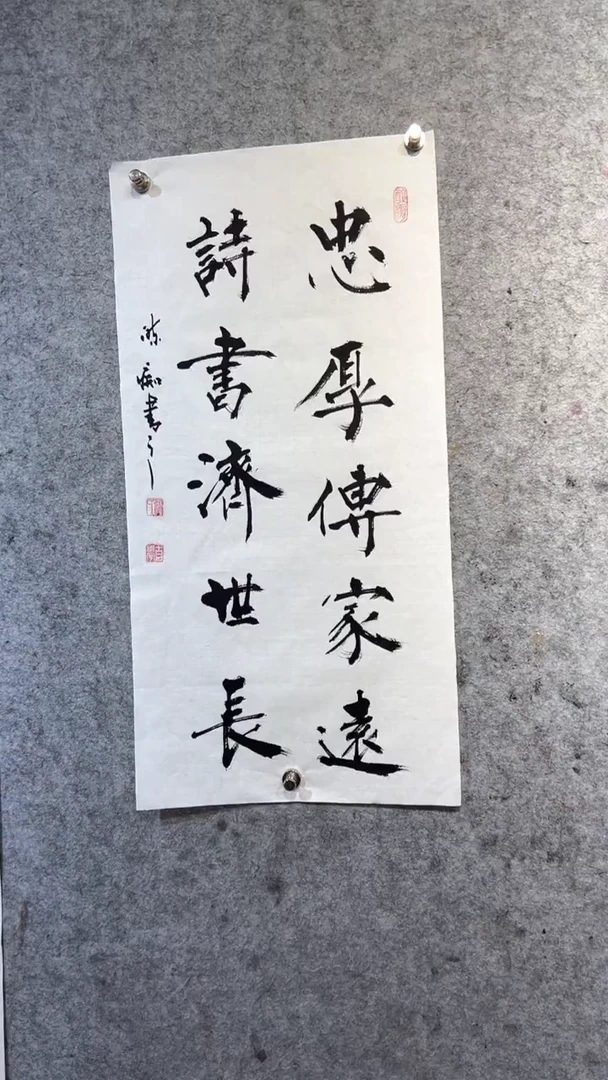 忠厚傳家遠
詩書濟世長
癡書